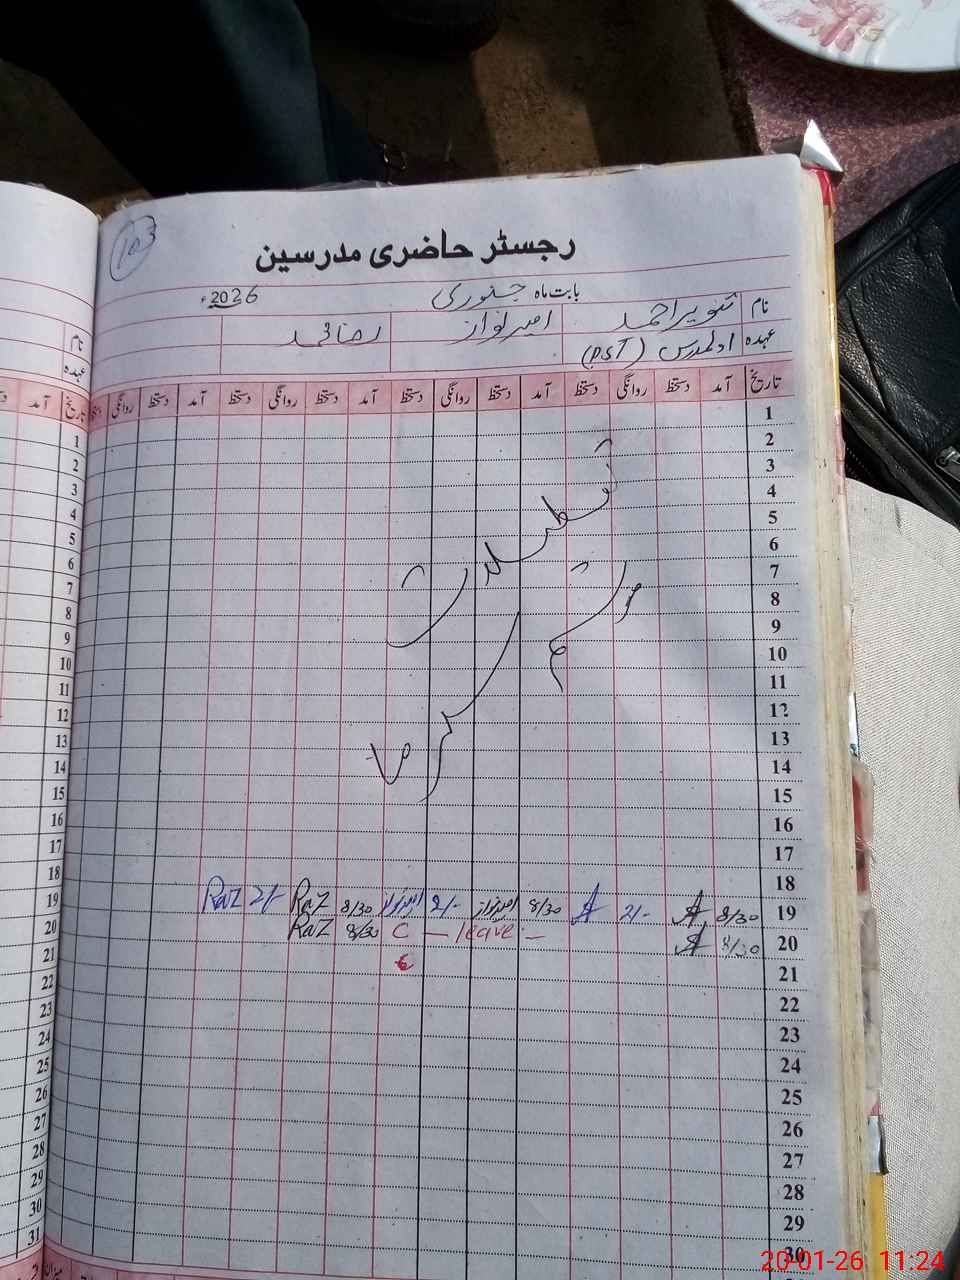 103
رجسٹر حاضری مدرسین
بابت ماہ جنوری 2026ء
نام تنویر احمد امیر نواز رضا محمد
عہدہ اول مدرس (PST)
تاریخ آمد دستخط روانگی دستخط آمد دستخط روانگی دستخط آمد دستخط روانگی دستخط آمد دستخط روانگی دستخط
1
2
3
4
5
6
7
8
9
10
11
12
13
14
15
16
17
18
تعطیلات
موسم
سرما
19 8/30 2/- 8/30 امیر نواز 2/- امیر نواز 8/30 Raz 2/- Raz
20 8/30 — leave — C 8/30 Raz
21
22
23
24
25
26
27
28
29
30
نام
عہدہ
تاریخ آمد
روانگی
1
2
3
4
5
6
7
8
9
10
11
12
13
14
15
16
17
18
19
20
21
22
23
24
25
26
27
28
29
30
31
میزان
20-01-26 11:24